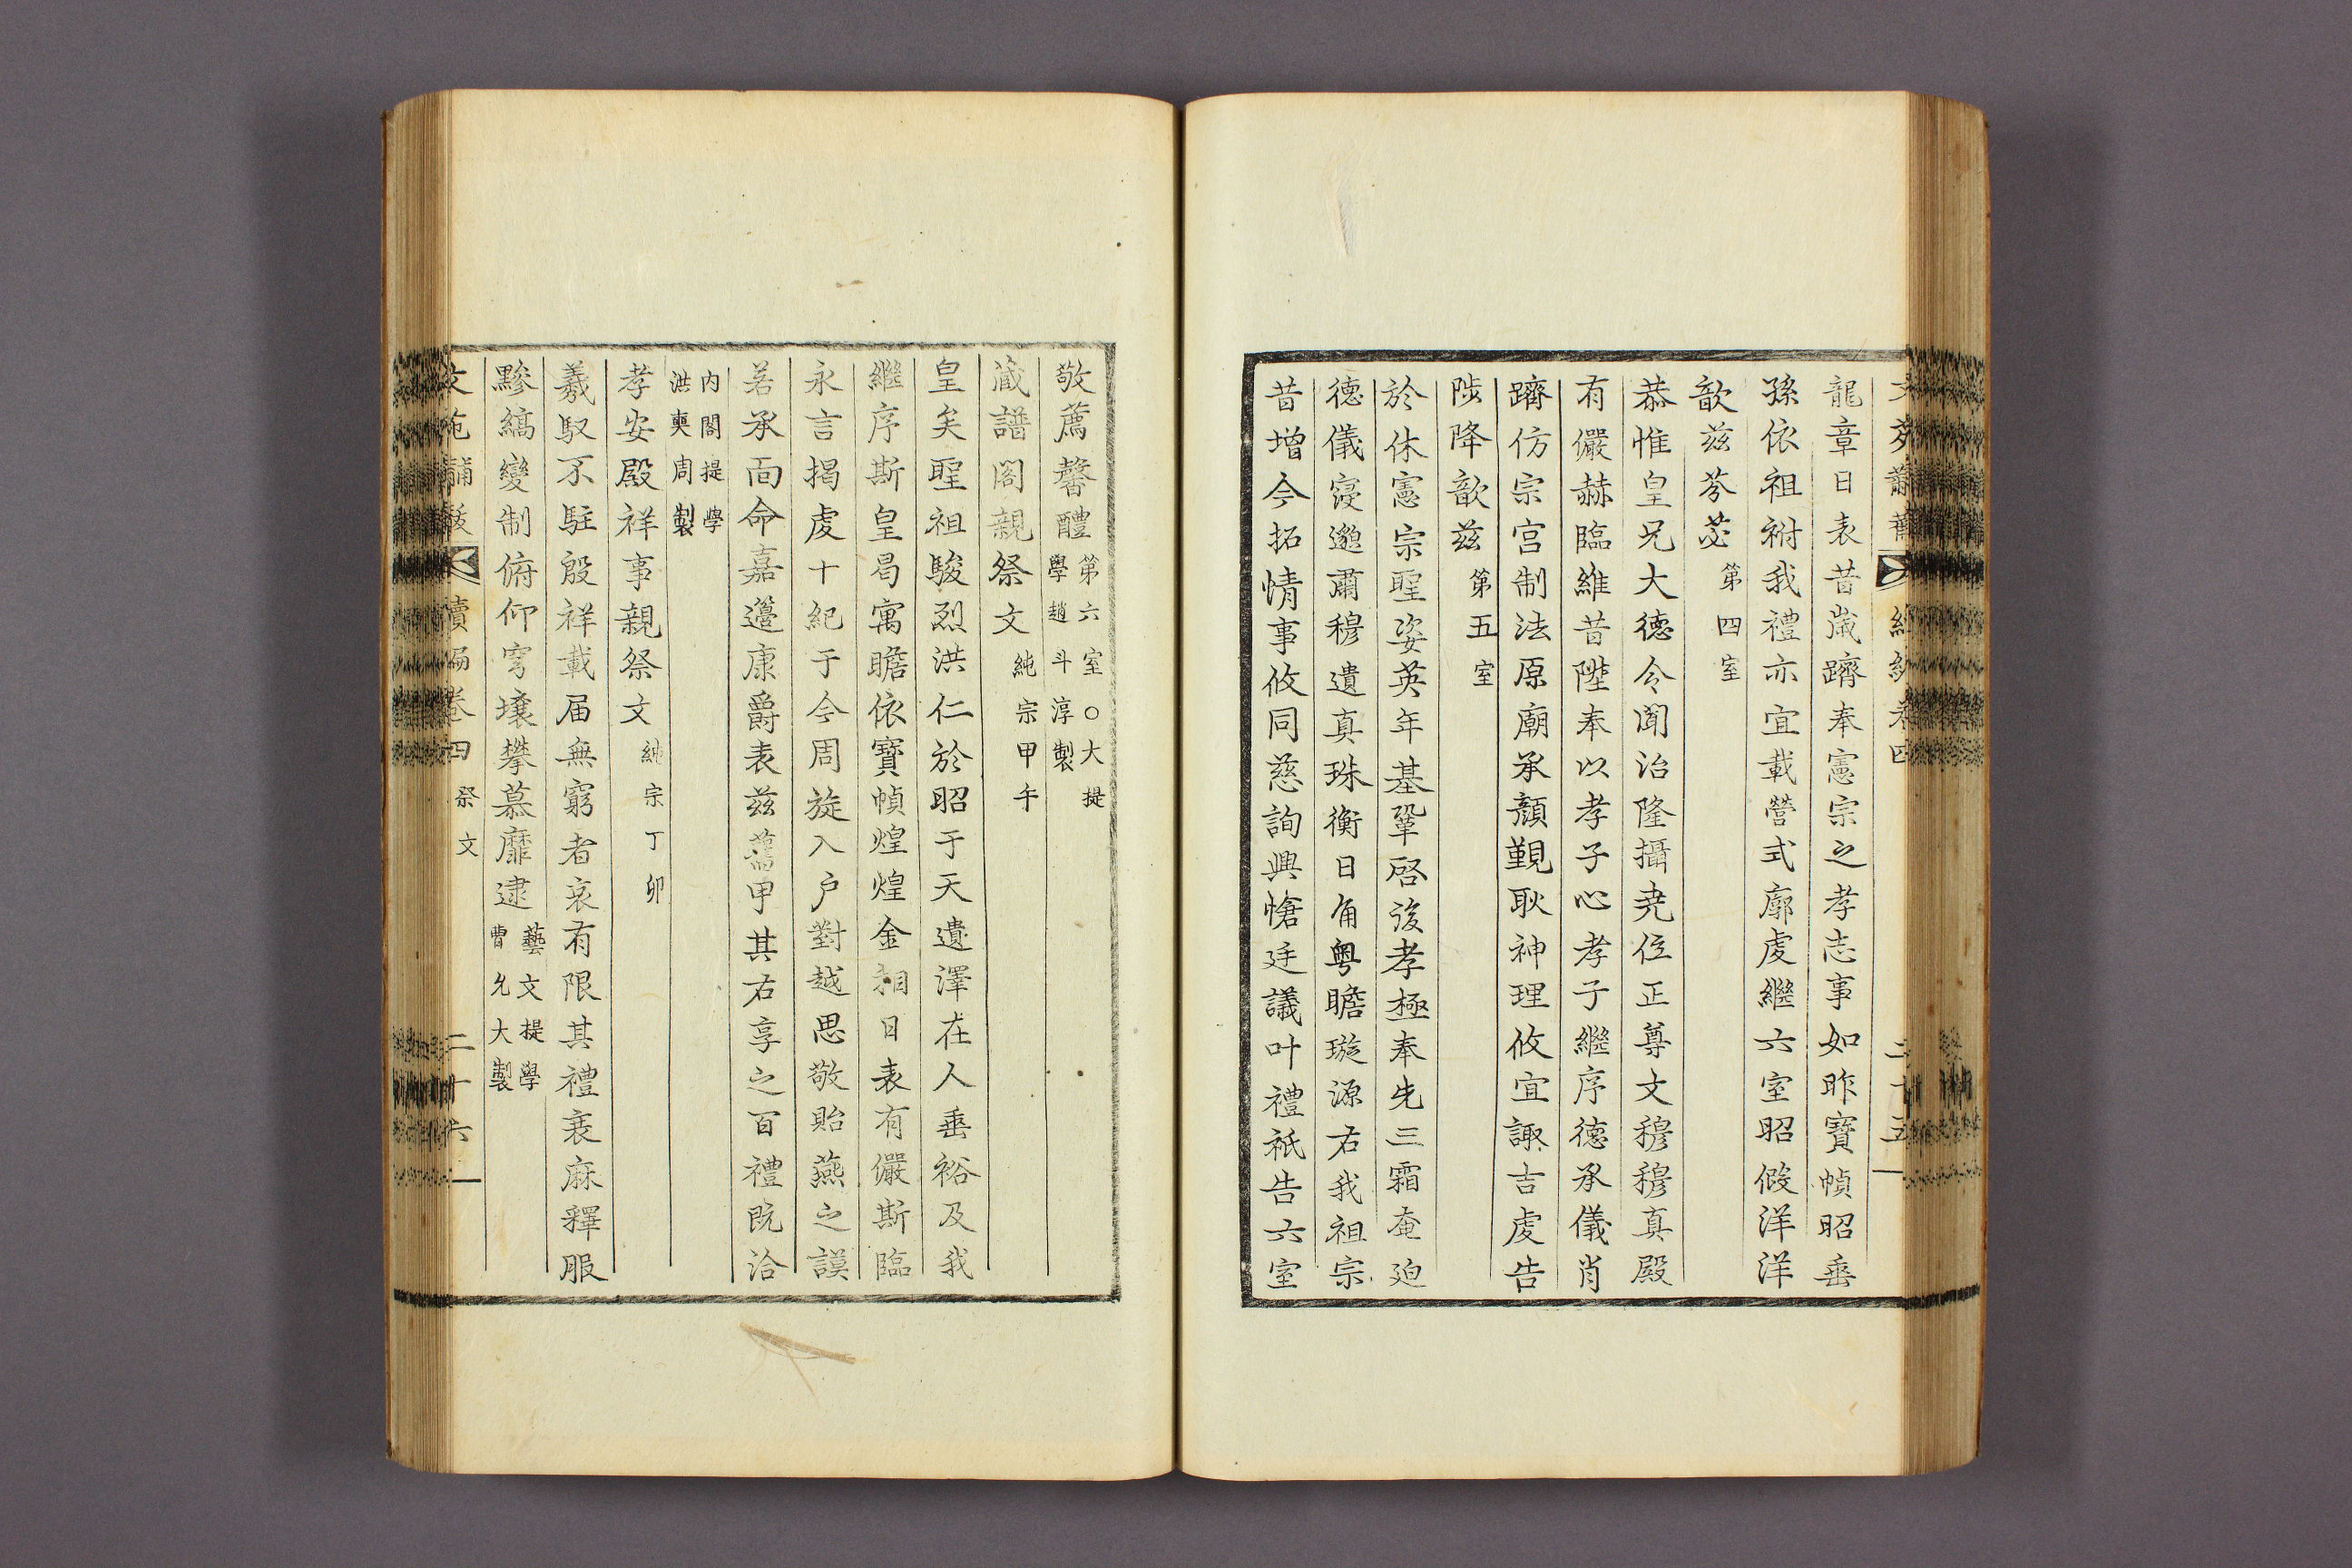 龍章日表昔歲躋奉憲宗之孝志事如昨寶幀昭垂
孫依祖祔我禮亦宜載營式廓䖏繼六室昭假洋洋
歆玆芬苾第四室
恭惟皇兄大德令聞治隆攝堯位正尊文穆穆真殿
有儼赫臨維昔陞奉以孝子心孝子繼序德承儀肖
躋仿宗宫制法原廟承顏覲耿神理攸宜諏吉䖏告
陟降歆玆第五室
於休憲宗聖姿英年基鞏啓後孝極奉先三霜奄迫
德儀寖邈肅穆遺真珠衡日角粤瞻璇源右我祖宗
昔增今拓情事攸同慈詢興愴廷議叶禮祇告六室
敬薦馨醴第六室○大提
學趙斗淳製
藏譜閣親祭文純宗甲午
皇矣聖祖駿烈洪仁於昭于天遺澤在人垂裕及我
繼序斯皇曷寓瞻依寶幀煌煌金相日表有儼斯臨
永言揭䖏十紀于今周旋入户對越思敬貽燕之謨
若承面命嘉籩康爵表玆舊甲其右享之百禮旣洽
内閣提學
洪奭周製
孝安殿祥事親祭文純宗丁卯
羲馭不駐殷祥載届無窮者哀有限其禮衰麻釋服
黲縞變制俯仰穹壤攀慕靡逮藝文提學
曹允大製
文苑黼黻 續編卷四 祭文 二十六